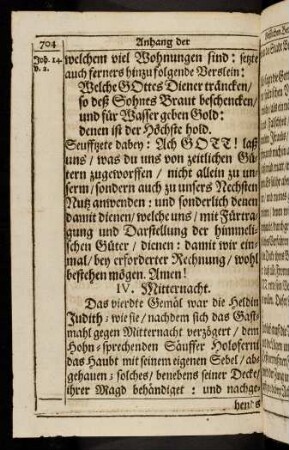 704 Anhang der
Joh. 14.
v. 2.
welchem viel Wohnungen sind: setzte
auch ferners hinzu folgende Verslein:
Welche GOttes Diener träncken/
so deß Sohnes Braut beschencken/
und für Wasser geben Gold:
denen ist der Höchste hold.
Seufftzete dabey: Ach GOTT! laß
uns/ was du uns von zeitlichen Gü-
tern zugeworffen/ nicht allein zu un-
serm/ sondern auch zu unsers Nechsten
Nutz anwenden: und sonderlich denen
damit dienen/ welche uns/ mit Fürtra-
gung und Darstellung der himmeli-
schen Güter/ dienen: damit wir ein-
mal/ bey erforderter Rechnung/ wohl
bestehen mögen. Amen!
IV. Mitternacht.
Das vierdte Gemäl war die Heldin
Judith: wie sie/ nachdem sich das Gast-
mahl gegen Mitternacht verzögert/ dem
Hohn-sprechenden Säuffer Holofern
das Haubt mit seinem eigenen Sebel/ ab-
gehauen: solches/ benebens seiner Decke/
ihrer Magd behändiget: und nachge-
hends